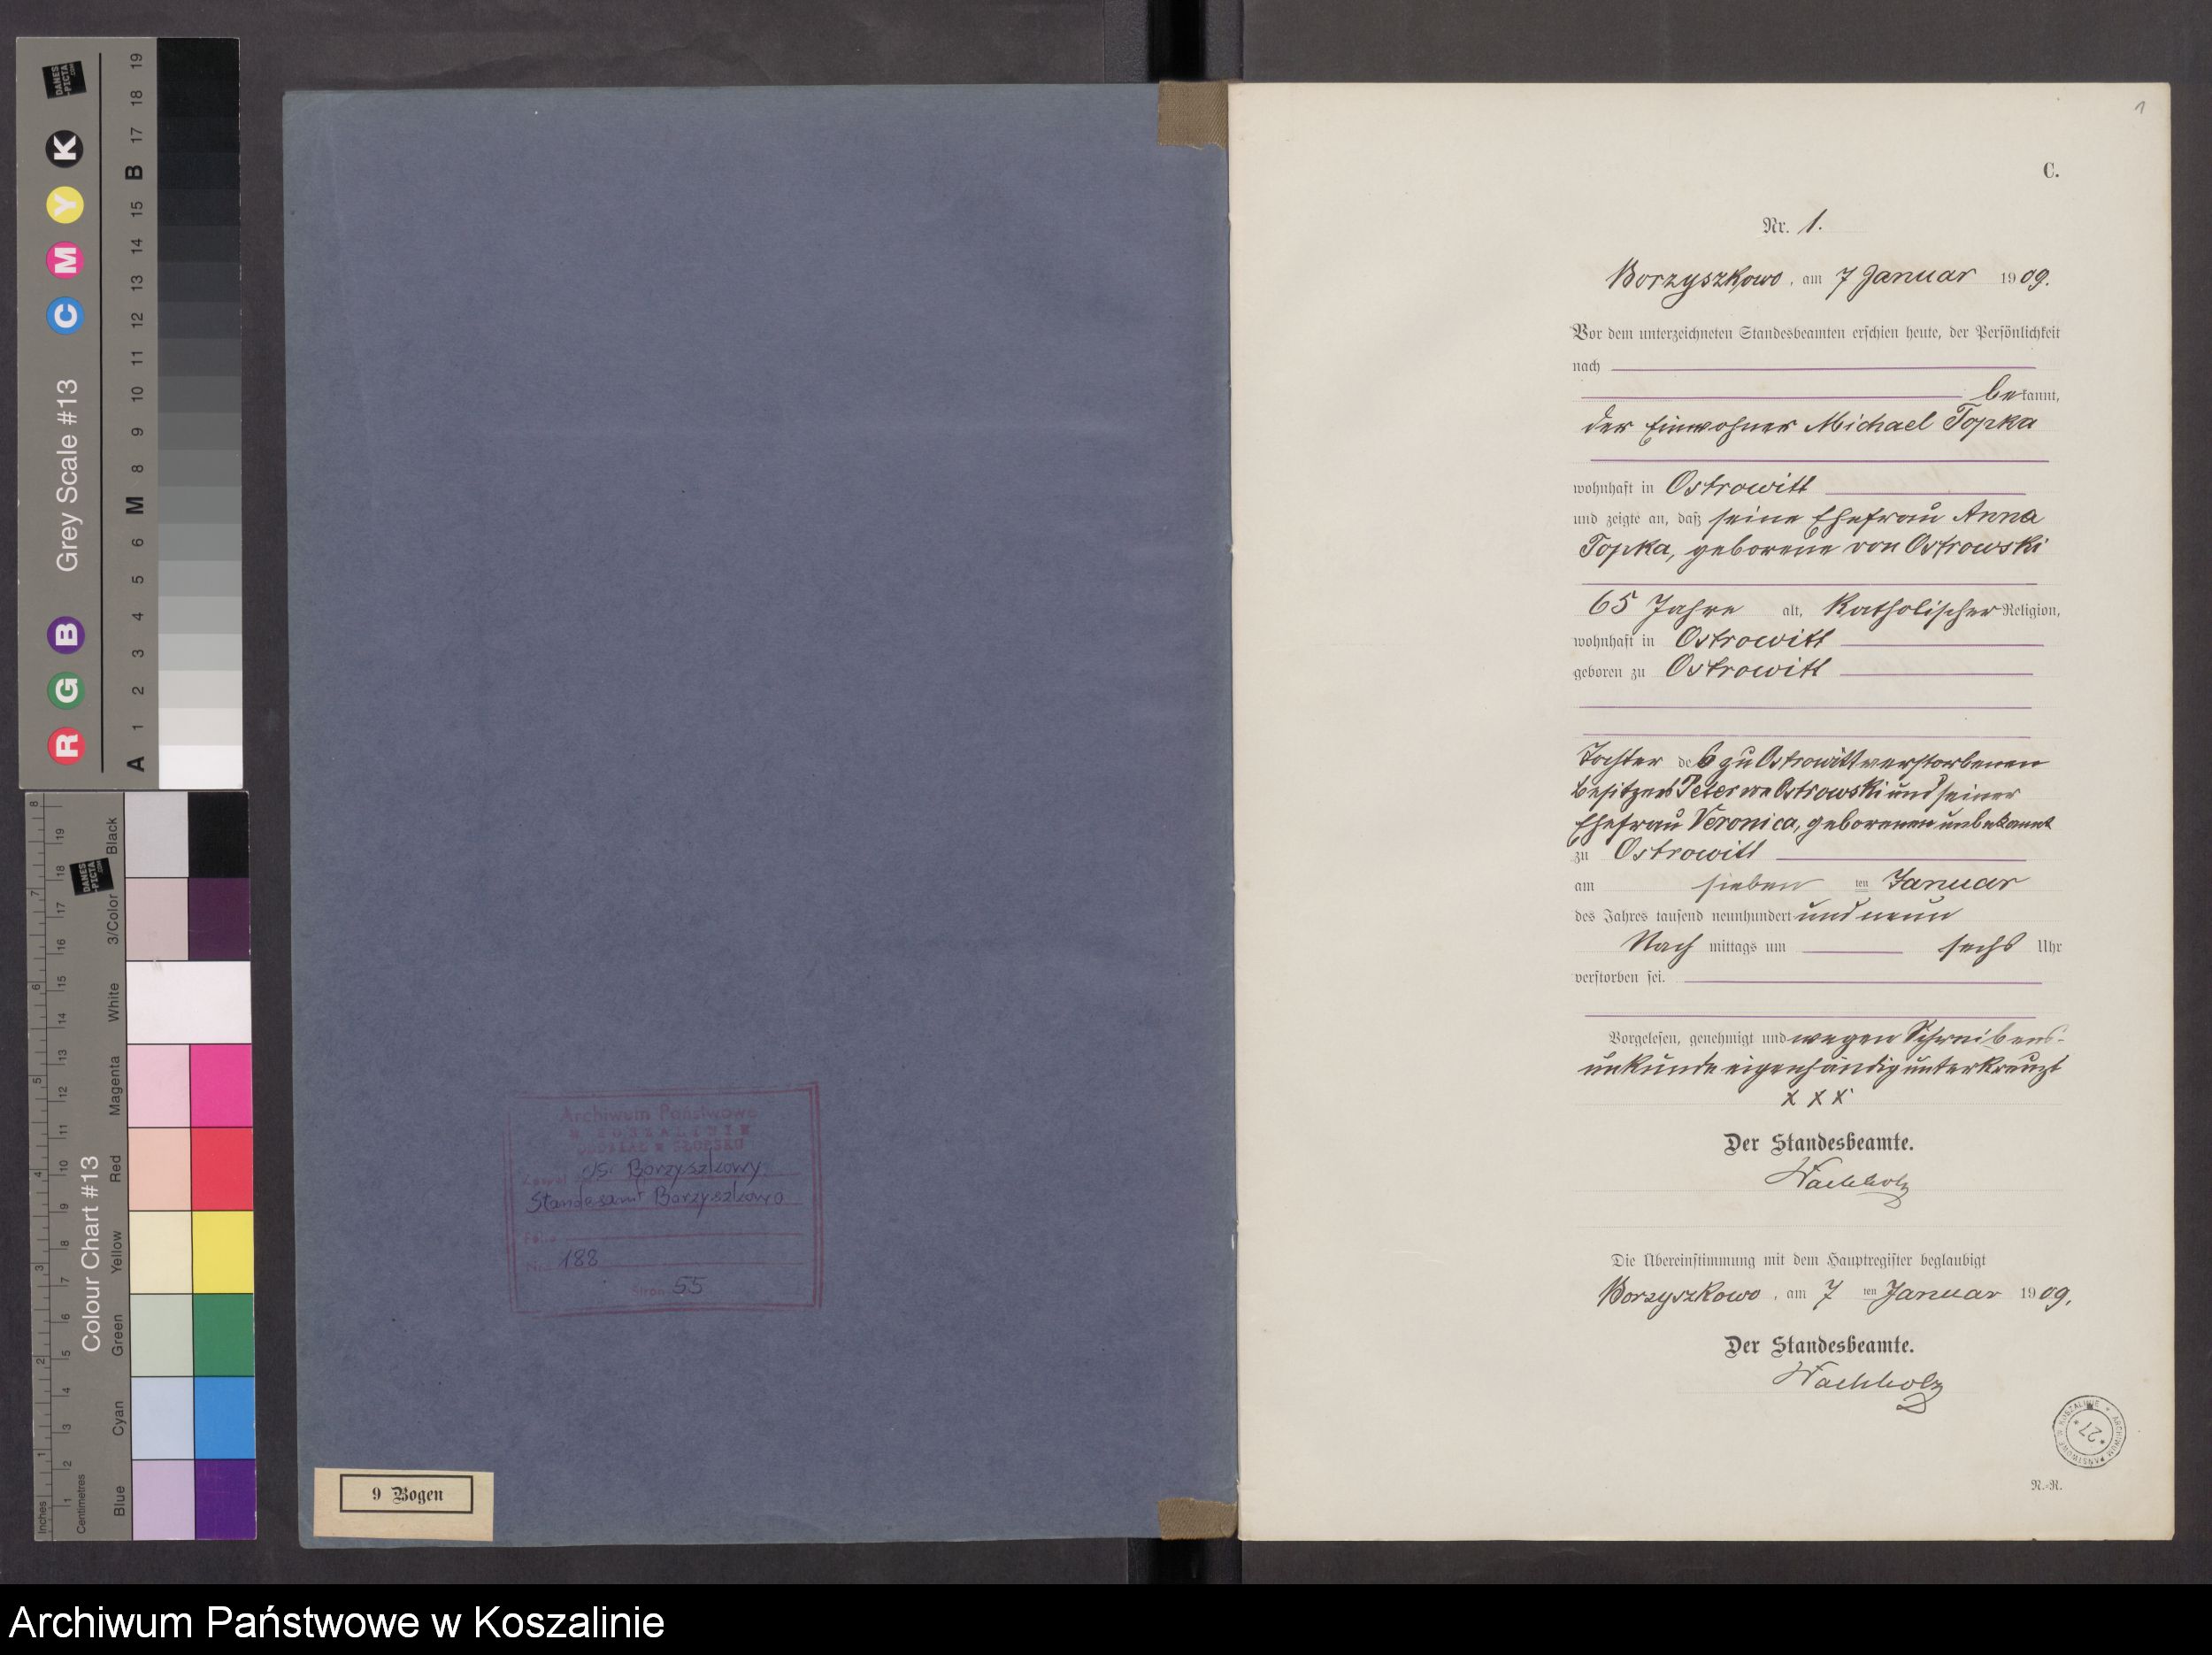 19 18 17 B 15 14 13 12 11 10 9 8 M 6 5 4 3 2 1 A
DANES-PICTA.COM
R G B Grey Scale #13 C M Y K
DANES-PICTA.COM
Colour Chart #13
Blue Cyan Green Yellow Red Magenta White 3/Color Black
Inches 1 2 3 4 5 6 7 8
Centimetres 1 2 3 4 5 6 7 8 9 10 11 12 13 14 15 16 17 18 19
Archiwum Państwowe
W KOSZALINIE
ODDZIAŁ W SŁUPSKU
Borzyszkowy
Standesamt Borzyszkowo
Nr. 188
Stron 55
9 Bogen
1
C.
Nr. 1.
Borzyszkowo, am 7 Januar 1909.
Vor dem unterzeichneten Standesbeamten erschien heute, der Persönlichkeit
nach
bekannt,
der Einwohner Michael Topka
wohnhaft in Ostrowitt
und zeigte an, daß seine Ehefrau Anna
Topka, geborene von Ostrowski
65 Jahre alt, katholischer Religion,
wohnhaft in Ostrowitt
geboren zu Ostrowitt
Tochter des zu Ostrowitt verstorbenen
Besitzers Peter von Ostrowski und seiner
Ehefrau Veronica, geborenen unbekannt
zu Ostrowitt
am sieben ten Januar
des Jahres tausend neunhundert und neun
Nachmittags um sechs Uhr
verstorben sei.
Vorgelesen, genehmigt und wegen Schreibens-
unkunde eigenhändig unterkreuzt
x x x
Der Standesbeamte.
Wachholz
Die Übereinstimmung mit dem Hauptregister beglaubigt
Borzyszkowo, am 7 ten Januar 1909.
Der Standesbeamte.
Wachholz
ARCHIWUM PAŃSTWOWE W KOSZALINIE
* 27 *
N.-R.
Archiwum Państwowe w Koszalinie